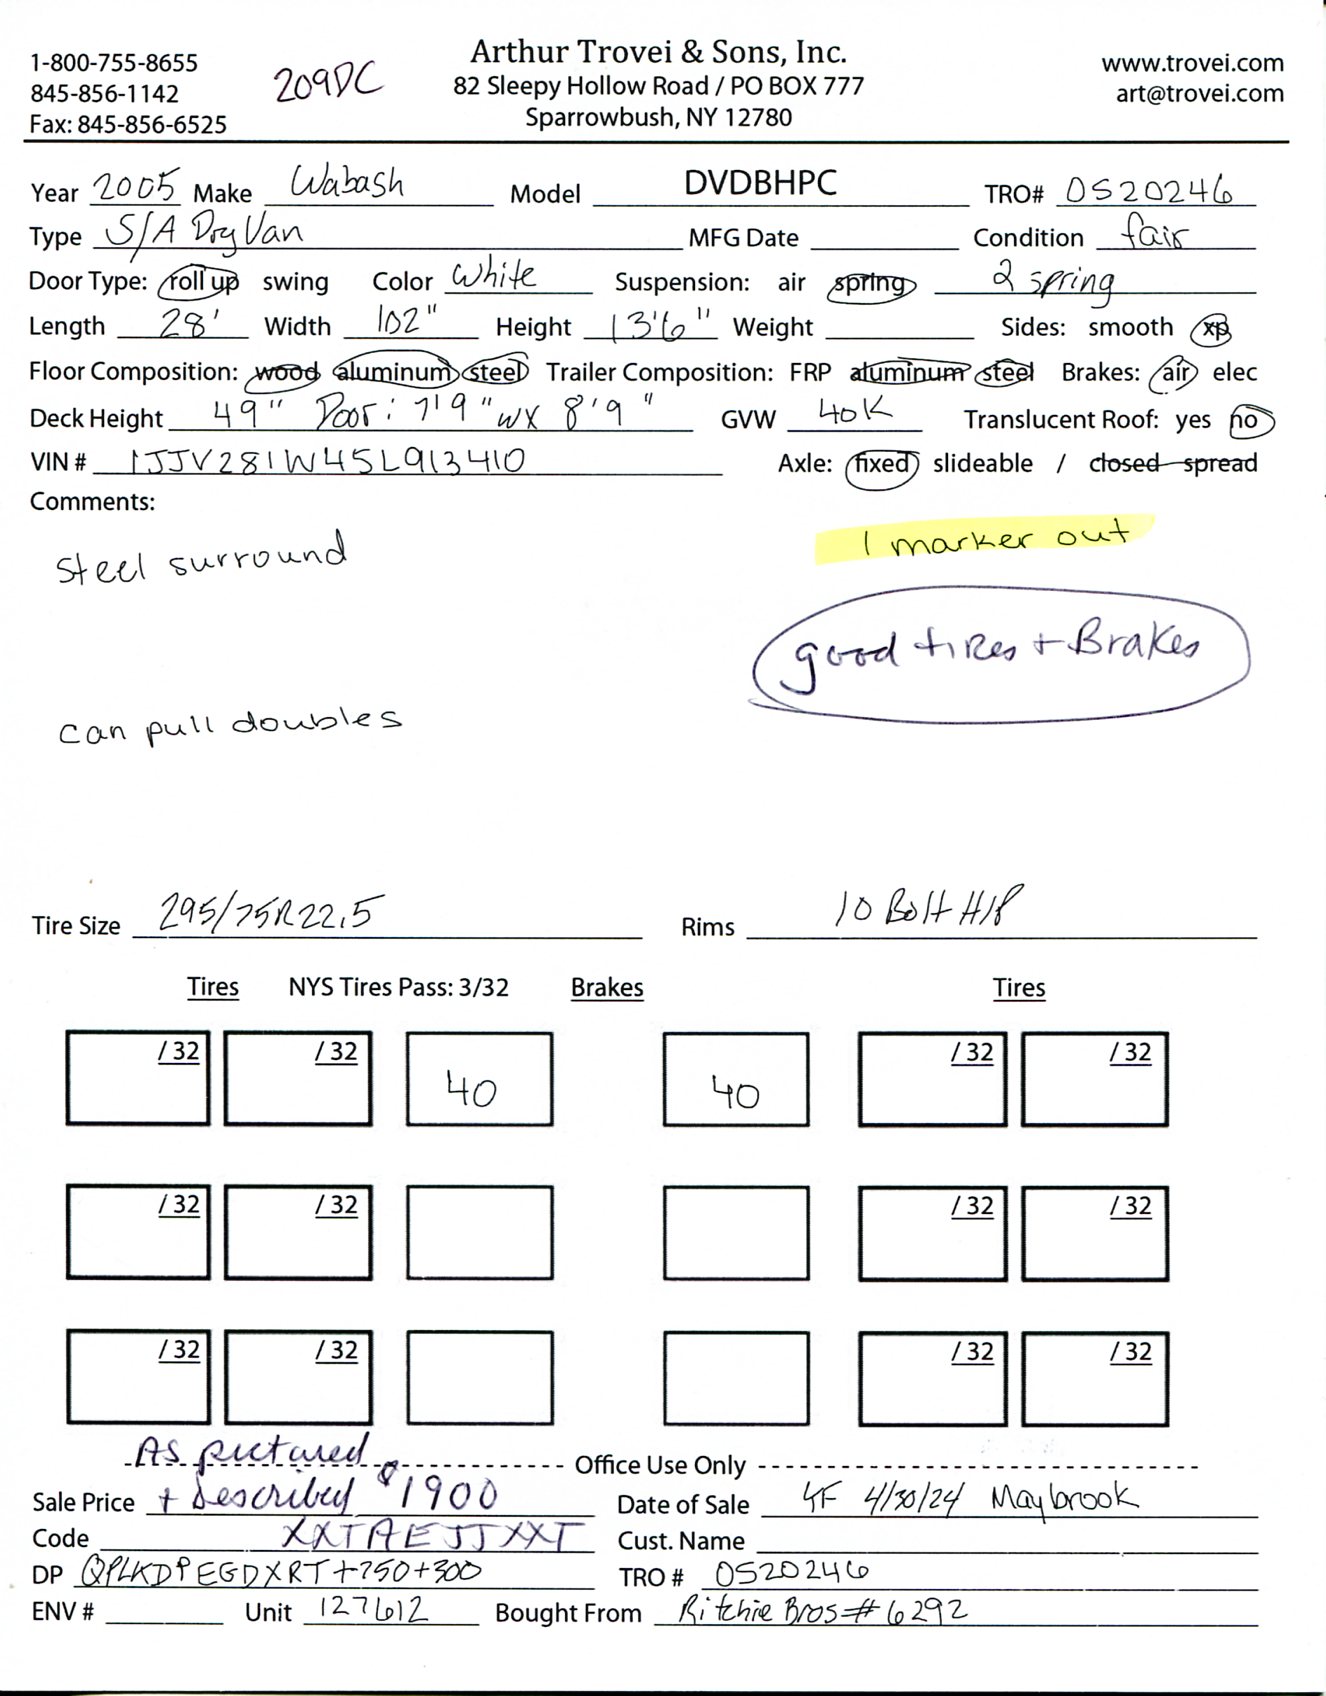 1-800-755-8655
845-856-1142
Fax: 845-856-6525
209DC
Arthur Trovei & Sons, Inc.
82 Sleepy Hollow Road / PO BOX 777
Sparrowbush, NY 12780
www.trovei.com
art@trovei.com
Year 2005 Make Wabash Model DVDBHPC TRO# OS20246
Type S/A Dry Van MFG Date Condition fair
Door Type: roll up swing Color White Suspension: air spring 2 spring
Length 28' Width 102" Height 13'6" Weight Sides: smooth xp
Floor Composition: wood aluminum steel Trailer Composition: FRP aluminum steel Brakes: air elec
Deck Height 49" Door: 7'9"w x 8'9" GVW 40K Translucent Roof: yes no
VIN # 1JJV281W45L913410 Axle: fixed slideable / closed spread
Comments:
1 marker out
steel surround
good tires + Brakes
can pull doubles
Tire Size 295/75R22.5 Rims 10 Bolt H/P
Tires NYS Tires Pass: 3/32 Brakes Tires
/32 /32 40 40 /32 /32
/32 /32 /32 /32
/32 /32 /32 /32
As pictured Office Use Only
Sale Price + Described $1900 Date of Sale 4/30/24 Maybrook
Code XXTAEJJXXT Cust. Name
DP QPLKDPEGDXRT+750+300 TRO # OS20246
ENV # Unit 127612 Bought From Ritchie Bros # 6292